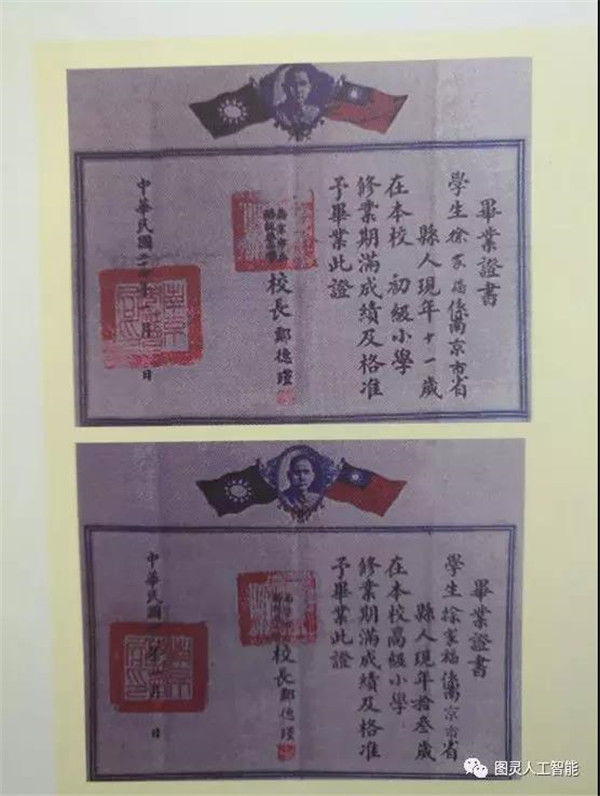 畢業證書
學生徐家福係南京市省
縣人現年十一歲
在本校 初級小學
修業期滿成績及格准
予畢業此證
校長 鄭德
中華民國 月 日
畢業證書
學生徐家福係南京市省
縣人現年拾叁歲
在本校高級小學
修業期滿成績及格准
予畢業此證
校長 鄭德
中華民國 月 日
图灵人工智能